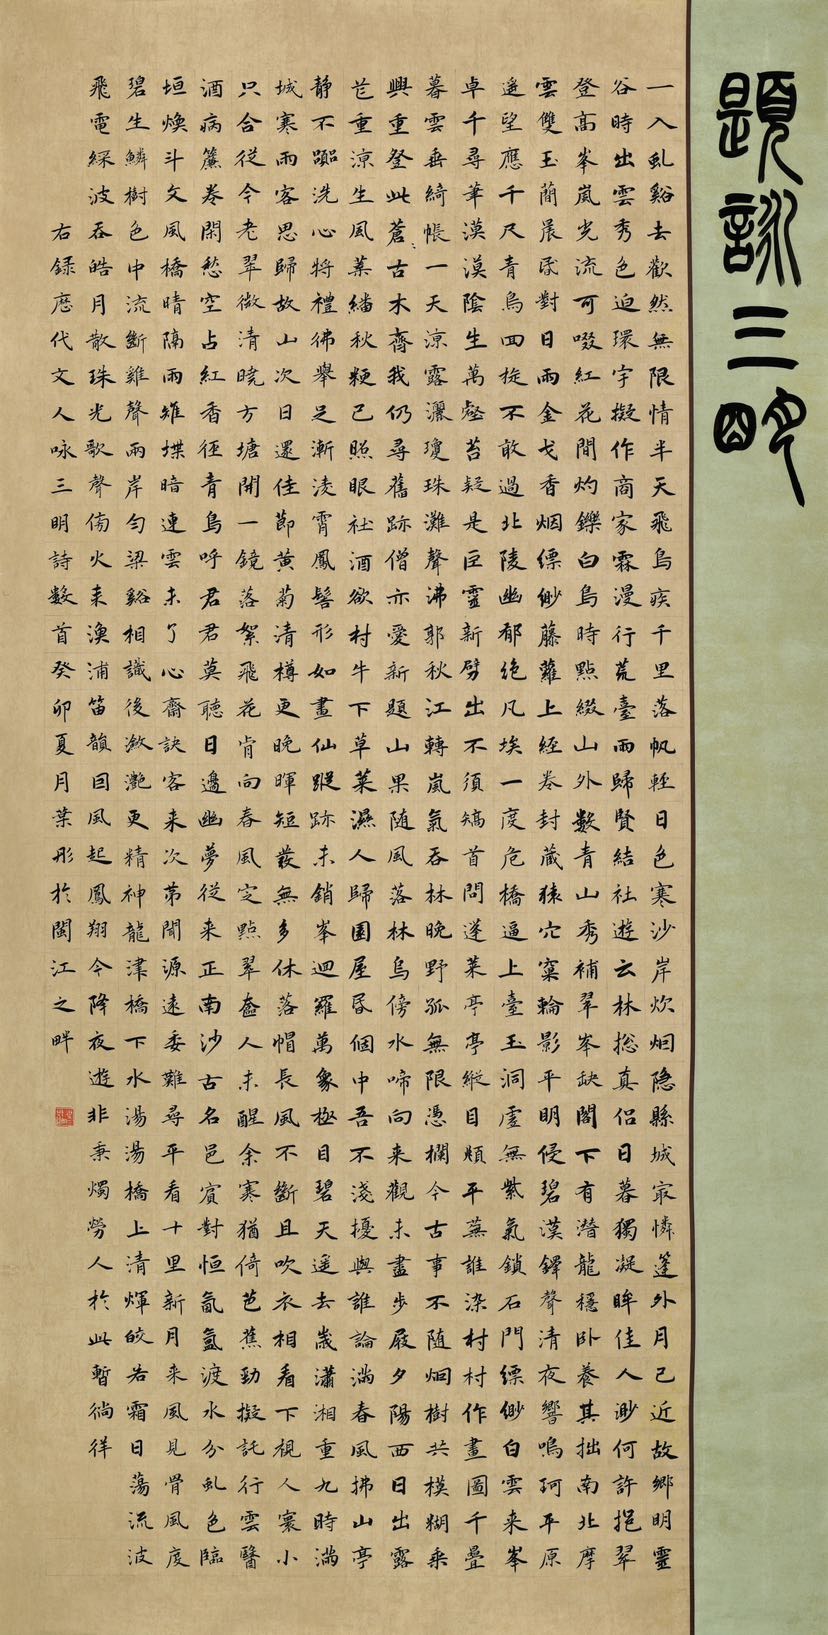 題詠三明
一入虬谿去歡然無限情半天飛鳥疾千里落帆輕日色寒沙岸炊烟隐縣城㝡憐篷外月已近故鄉明靈
谷時出雲秀色迫環宇擬作商家霖漫行荒臺雨歸賢結社遊云林揔真侣日暮獨凝眸佳人渺何許挹翠
登高峯嵐光流可啜紅花間灼鑠白鳥時點綴山外數青山秀補翠峯缺閣下有潜龍穩卧養其拙南北摩
雲雙玉蕳晨昏對日雨金戈香烟缥缈藤蘿上經卷封蔵猿穴窠輪影平明侵碧漠鐸聲清夜響鳴珂平原
遥望應千尺青鳥四旋不敢過北陵幽郁绝凡埃一度危橋逼上臺玉洞虚無紫氣鎖石門缥缈白雲来峯
卓千尋筆漠漠陰生萬壑苔疑是巨靈新劈出不須矯首問蓬莱亭亭縱目順平蕪誰染村村作畫圖千疊
暮雲垂綺帳一天涼露灑瓊珠灘聲沸郭秋江轉嵐氣吞林晚野孤無限憑欄今古事不随烟樹共模糊乘
興重登此蒼〻古木齊我仍尋舊跡僧亦愛新題山果随風落林鳥傍水啼向来觀未盡步屐夕陽西日出露
芒重涼生風葉繙秋粳已照眼社酒欲村牛下草莱濕人歸園屋昏個中吾不淺擾與誰論滿春風拂山亭
静不躁洗心將禮彿舉足漸淩霄鳳髻形如畫仙蹤跡未銷峯迴羅萬象極目碧天遥去歲瀟湘重九時滿
城寒雨客思歸故山次日還佳節黄菊清樽更晚暉短鬂無多休落帽長風不斷且吹衣相看下視人寰小
只合從今老翠微清曉方塘開一鏡落絮飛花肯向春風定點翠奩人未醒余寒猶倚芭蕉勁擬託行雲醫
酒病簾卷閑愁空占紅香徑青鳥呼君君莫聽日邊幽夢從来正南沙古名邑賓對恒氤氲渡水分虬色臨
垣煥斗文風橋晴隔雨雉堞暗連雲未了心齋訣客来次第聞源遠委難尋平看十里新月来風見骨風度
碧生鱗樹色中流斷雞聲兩岸勻梁谿相識後潋灔更精神龍津橋下水湯湯橋上清煇皎若霜日蕩流波
飛電綵波吞皓月散珠光歌聲傭火来漁浦笛韻囘風起鳳翔今降夜遊非秉燭勞人於此暫徜徉
右録歷代文人咏三明詩数首癸卯夏月葉彤於閩江之畔